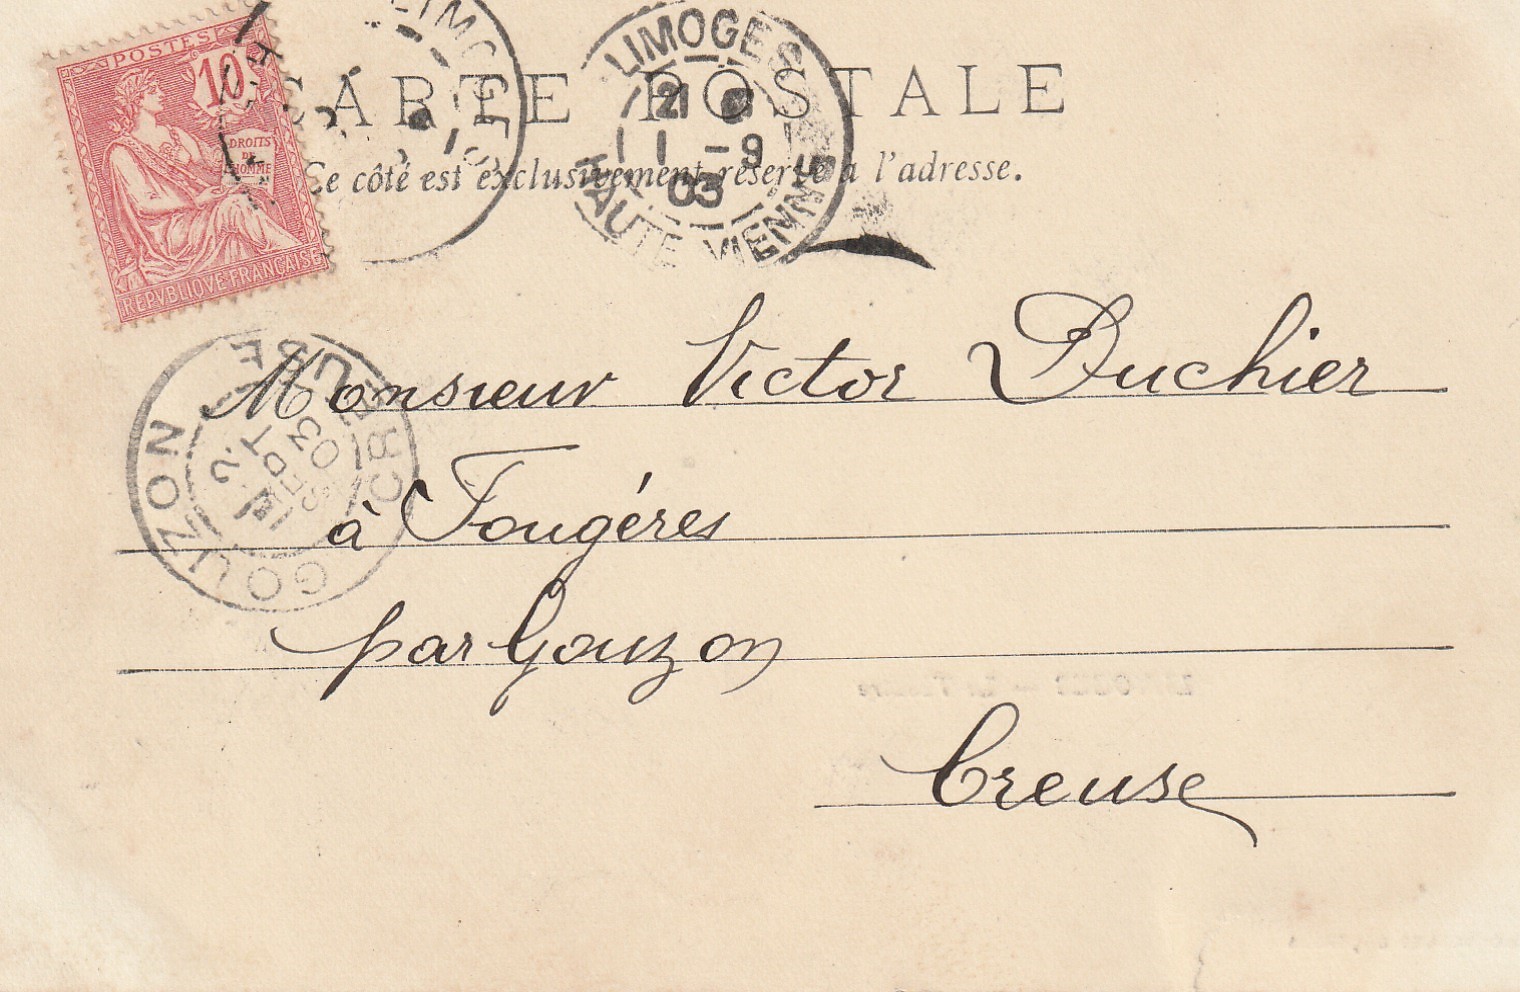 POSTES
10
DROITS
DE
L'HOMME
REPVBLIQVE FRANÇAISE
LIMOGES
CARTE POSTALE
Ce côté est exclusivement réservé à l'adresse.
LIMOGES
21
1 - 9
03
HAUTE-VIENNE
Monsieur Victor Duchier
à Fougéres
par Gouzon
Creuse
GOUZON
2
SEPT
03
CREUSE